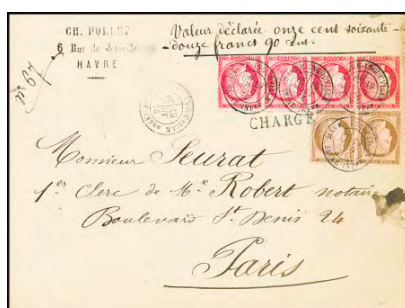 CH. POLLET
6 Rue de Joinville
HAVRE
Valeur déclarée onze cent soixante-
douze francs 90 cent.
CHARGÉ
Monsieur Seurat
1er Clerc de Me Robert notaire
Boulevard St Denis 24
Paris